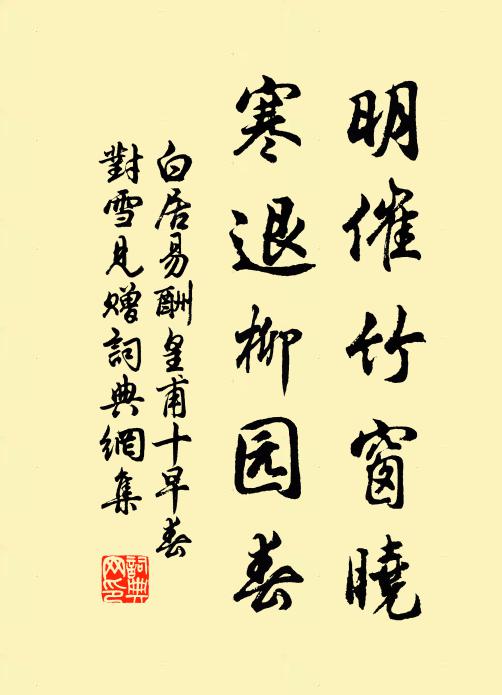 明催竹窗曉
寒退柳园春
白居易酬皇甫十早春
對雪見贈詞典網集
詞典网印